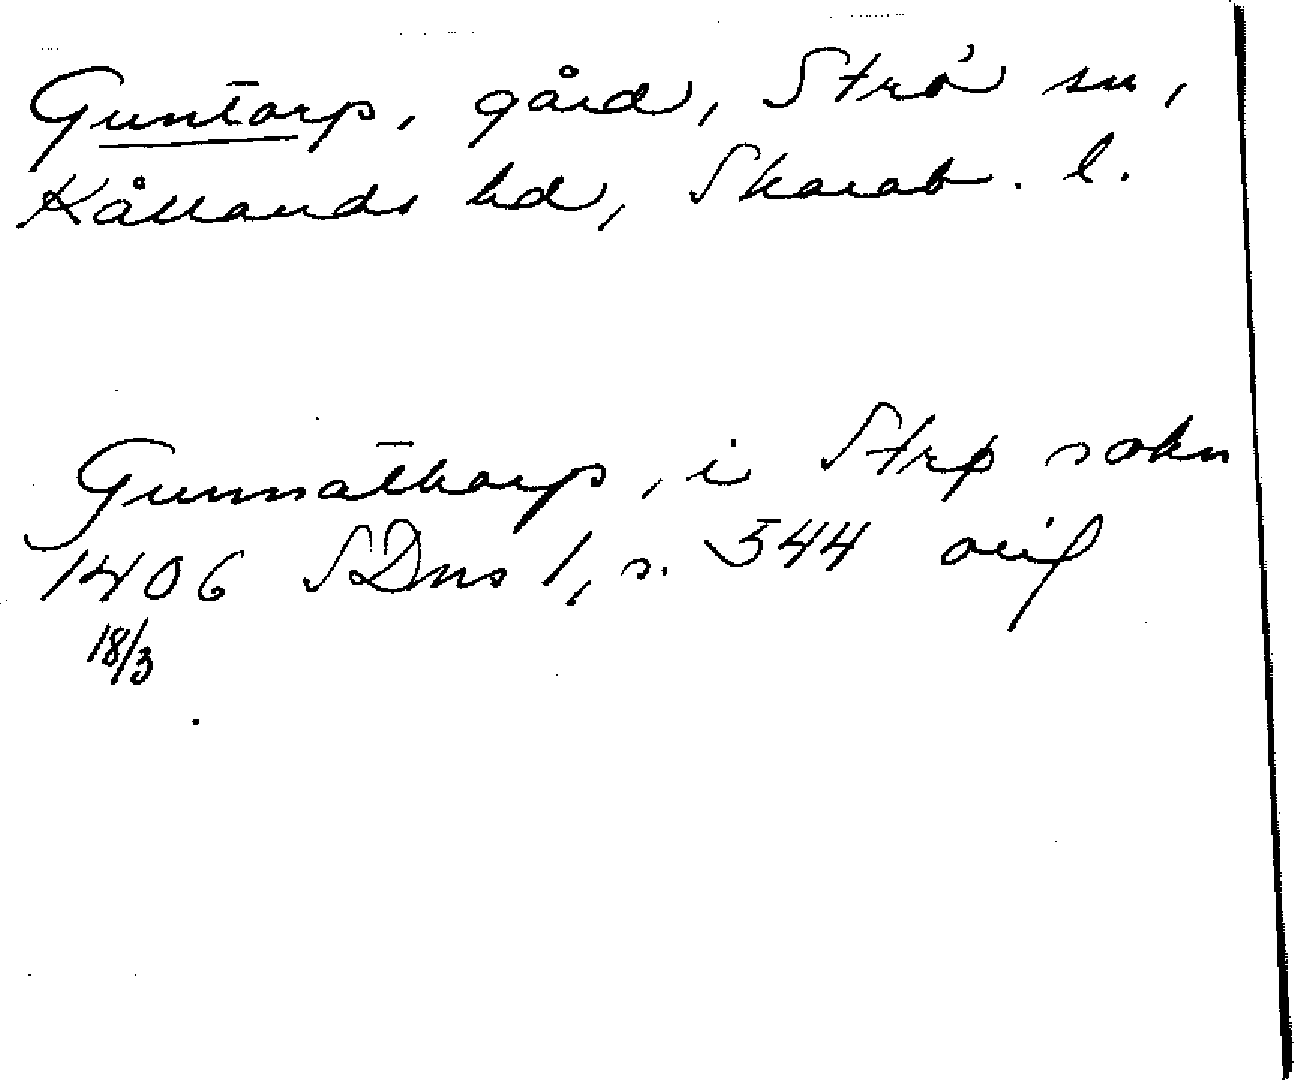 Guntorp, gård, Strö sn,
Kållands hd, Skarab. l.
Gunnathorp, i Strø sokn
1406 SDns 1, s. 544 avif
18/3